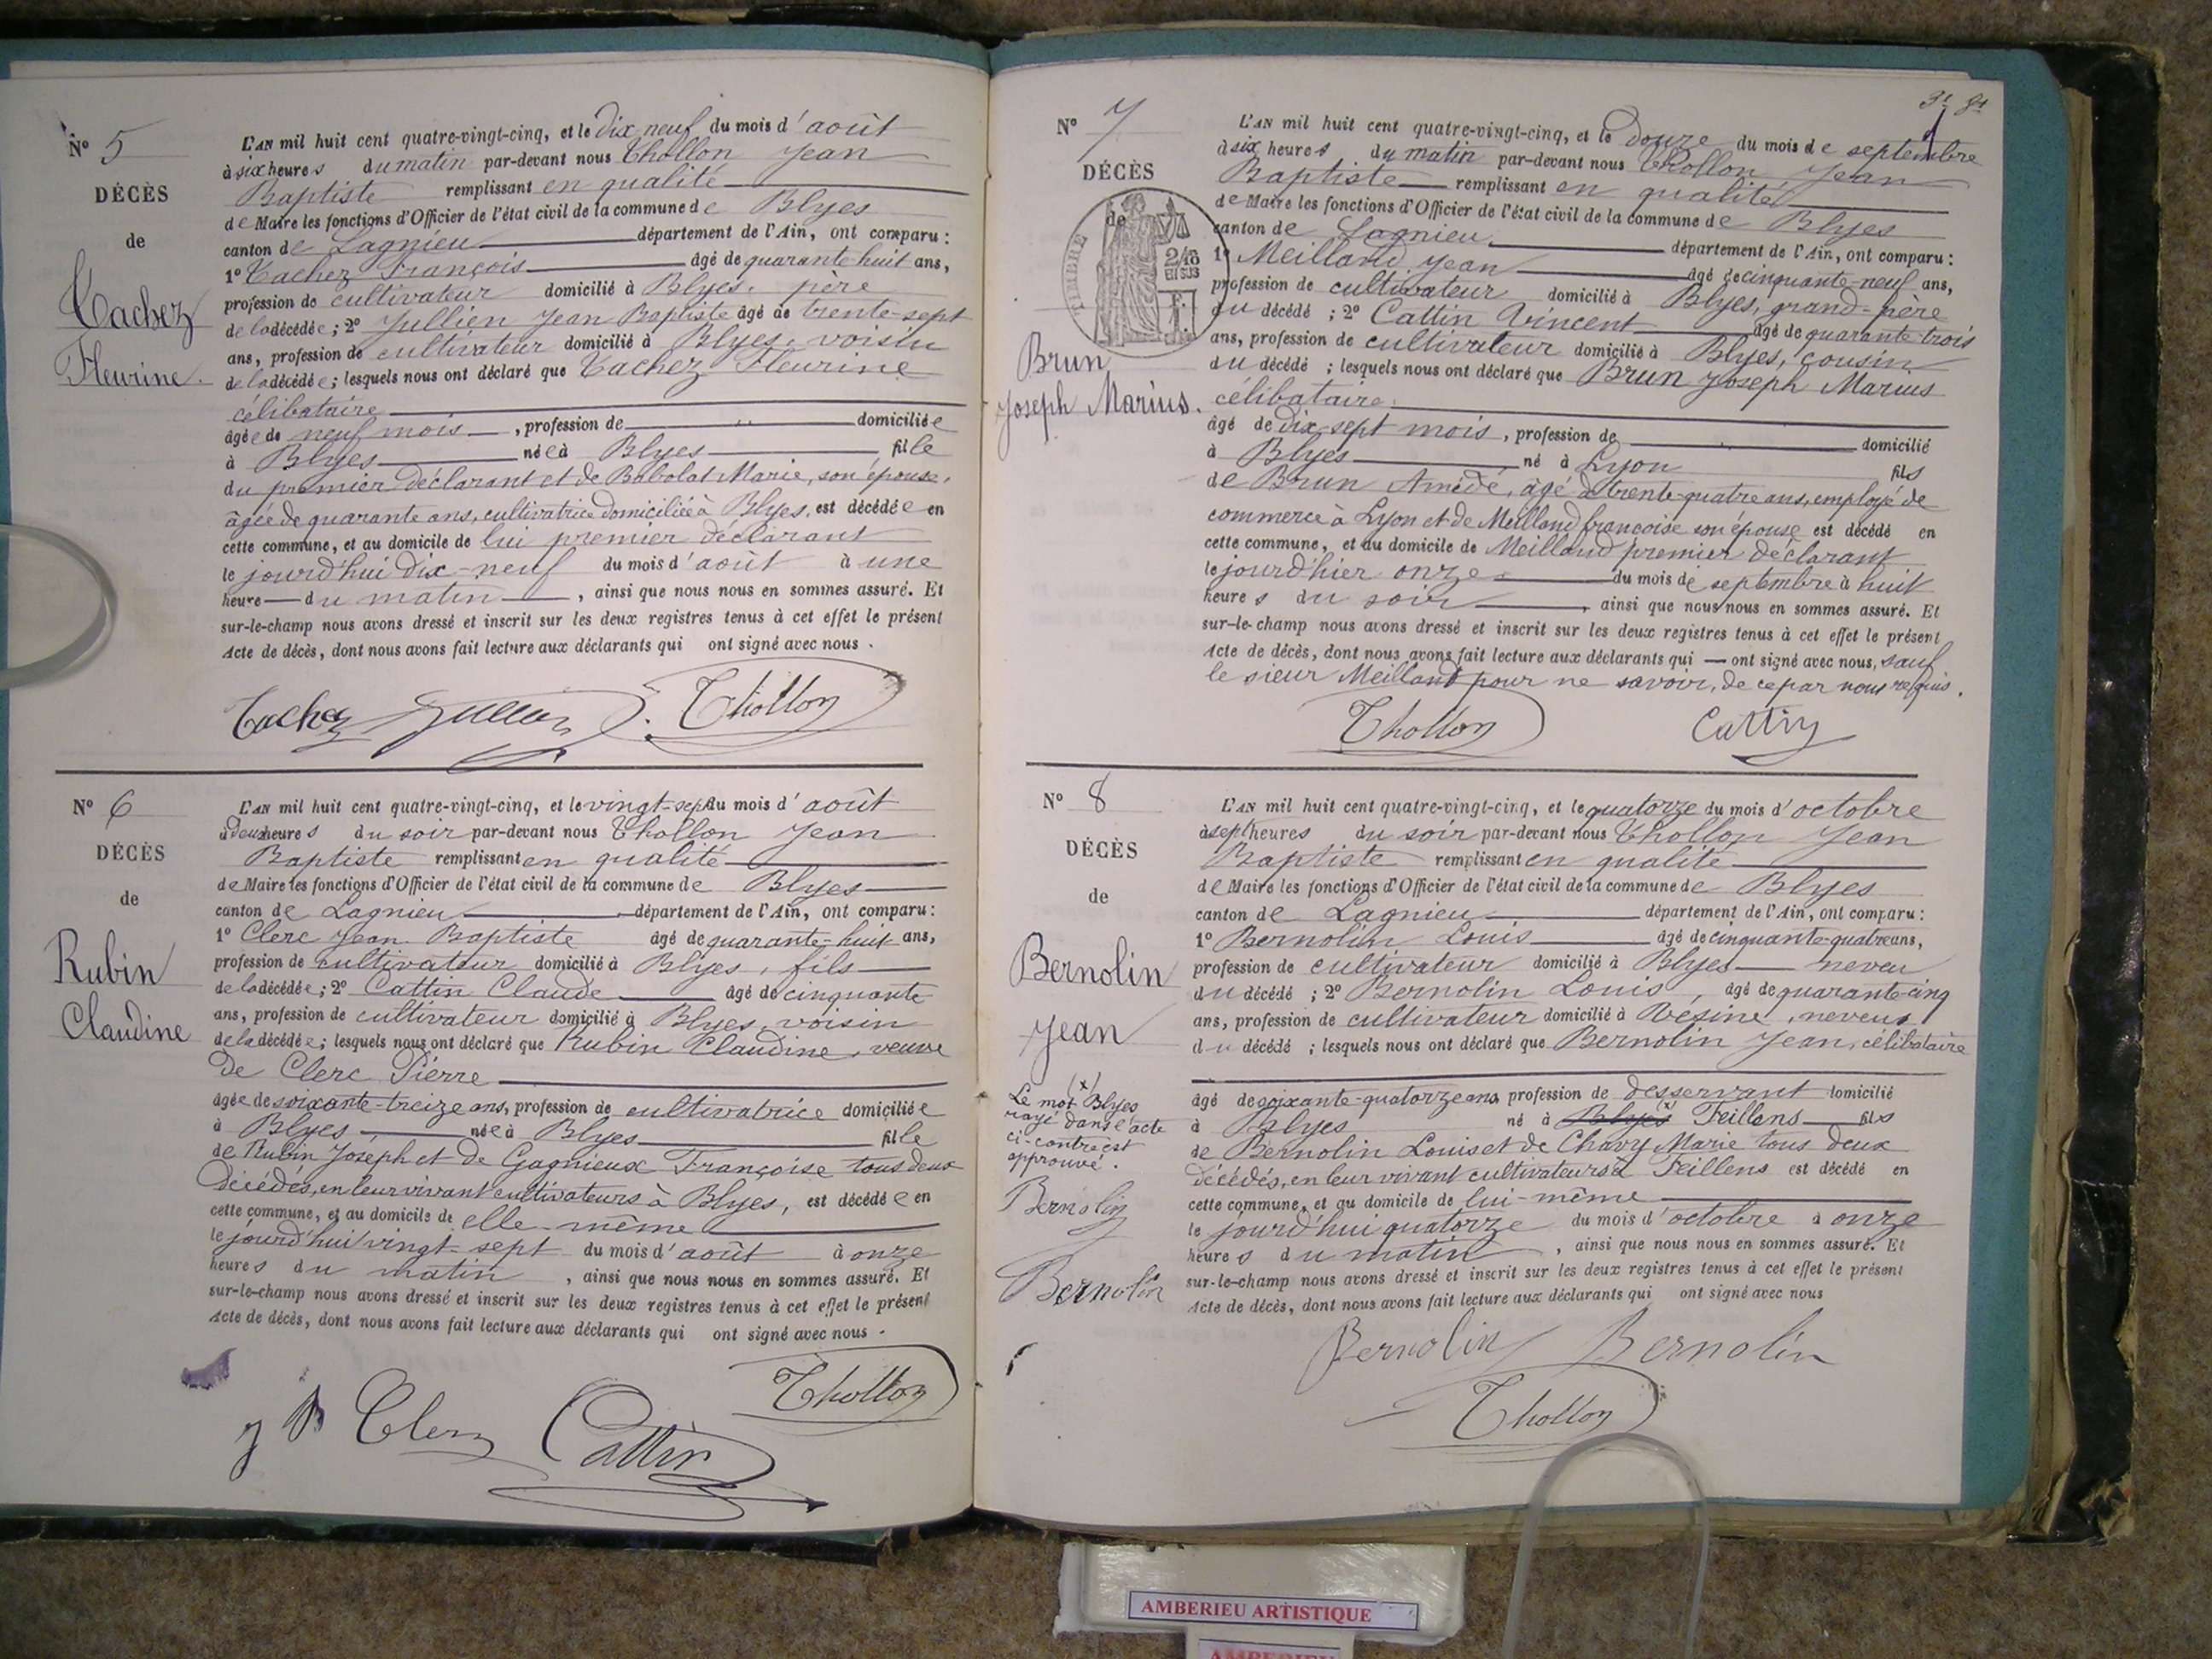 N° 5
DÉCÈS
de
Tachez
Fleurine.
L'AN mil huit cent quatre-vingt-cinq, et le dix neuf du mois d'août
à six heures du matin par-devant nous Thollon Jean
Baptiste remplissant en qualité
de Maire les fonctions d'Officier de l'état civil de la commune de Blyes
canton de Lagnieu département de l'Ain, ont comparu :
1° Tachez François âgé de quarante huit ans,
profession de cultivateur domicilié à Blyes, père
de la décédée ; 2° Jullien Jean Baptiste âgé de trente-sept
ans, profession de cultivateur domicilié à Blyes, voisin
de la décédée ; lesquels nous ont déclaré que Tachez Fleurine
célibataire
âgée de neuf mois, profession de domiciliée
à Blyes née à Blyes fille
du premier déclarant et de Bobolat Marie, son épouse,
âgée de quarante ans, cultivatrice domiciliée à Blyes, est décédée en
cette commune, et au domicile de lui premier déclarant
le jourd'hui dix-neuf du mois d'août à une
heure du matin, ainsi que nous nous en sommes assuré. Et
sur-le-champ nous avons dressé et inscrit sur les deux registres tenus à cet effet le présent
Acte de décès, dont nous avons fait lecture aux déclarants qui ont signé avec nous.
Tachez Jullien J. Thollon
N° 6
DÉCÈS
de
Rubin
Claudine
L'AN mil huit cent quatre-vingt-cinq, et le vingt-sept du mois d'août
à deux heures du soir par-devant nous Thollon Jean
Baptiste remplissant en qualité
de Maire les fonctions d'Officier de l'état civil de la commune de Blyes
canton de Lagnieu département de l'Ain, ont comparu :
1° Clerc Jean Baptiste âgé de quarante-huit ans,
profession de cultivateur domicilié à Blyes, fils
de la décédée ; 2° Cattin Claude âgé de cinquante
ans, profession de cultivateur domicilié à Blyes, voisin
de la décédée ; lesquels nous ont déclaré que Rubin Claudine, veuve
de Clerc Pierre
âgée de soixante-treize ans, profession de cultivatrice domiciliée
à Blyes, née à Blyes fille
de Rubin Joseph et de Gagnieux Françoise tous deux
décédés, en leur vivant cultivateurs à Blyes, est décédée en
cette commune, et au domicile de elle-même
le jourd'hui vingt-sept du mois d'août à onze
heures du matin, ainsi que nous nous en sommes assuré. Et
sur-le-champ nous avons dressé et inscrit sur les deux registres tenus à cet effet le présent
Acte de décès, dont nous avons fait lecture aux déclarants qui ont signé avec nous.
Thollon
J B Clerc Cattin
N° 7
DÉCÈS
de
TIMBRE
2/10
EN SUS
Brun
Joseph Marius.
L'AN mil huit cent quatre-vingt-cinq, et le douze du mois de septembre
à six heures du matin par-devant nous Thollon Jean
Baptiste remplissant en qualité
de Maire les fonctions d'Officier de l'état civil de la commune de Blyes
canton de Lagnieu département de l'Ain, ont comparu :
1° Meilland Jean âgé de cinquante-neuf ans,
profession de cultivateur domicilié à Blyes, grand-père
du décédé ; 2° Cattin Vincent âgé de quarante-trois
ans, profession de cultivateur domicilié à Blyes, cousin
du décédé ; lesquels nous ont déclaré que Brun Joseph Marius
célibataire
âgé de dix-sept mois, profession de domicilié
à Blyes né à Lyon fils
de Brun Amédé, âgé de trente-quatre ans, employé de
commerce à Lyon et de Meilland françoise son épouse est décédé en
cette commune, et au domicile de Meilland premier déclarant
le jourd'hier onze du mois de septembre à huit
heures du soir, ainsi que nous nous en sommes assuré. Et
sur-le-champ nous avons dressé et inscrit sur les deux registres tenus à cet effet le présent
Acte de décès, dont nous avons fait lecture aux déclarants qui — ont signé avec nous, sauf
le sieur Meilland pour ne savoir, de ce par nous requis.
Thollon Cattin
N° 8
DÉCÈS
de
Bernolin
Jean
(x)
Le mot Blyes
rayé dans l'acte
ci-contre est
approuvé.
Bernolin
Bernolin
L'AN mil huit cent quatre-vingt-cinq, et le quatorze du mois d'octobre
à sept heures du soir par-devant nous Thollon Jean
Baptiste remplissant en qualité
de Maire les fonctions d'Officier de l'état civil de la commune de Blyes
canton de Lagnieu département de l'Ain, ont comparu :
1° Bernolin Louis âgé de cinquante-quatre ans,
profession de cultivateur domicilié à Blyes neveu
du décédé ; 2° Bernolin Louis, âgé de quarante-cinq
ans, profession de cultivateur domicilié à Vesine, neveu
du décédé ; lesquels nous ont déclaré que Bernolin Jean, célibataire
âgé de soixante-quatorze ans, profession de desservant domicilié
à Blyes né à Blyes (x) Feillens fils
de Bernolin Louis et de Chavy Marie tous deux
décédés, en leur vivant cultivateurs à Feillens est décédé en
cette commune, et au domicile de lui-même
le jourd'hui quatorze du mois d'octobre à onze
heures du matin, ainsi que nous nous en sommes assuré. Et
sur-le-champ nous avons dressé et inscrit sur les deux registres tenus à cet effet le présent
Acte de décès, dont nous avons fait lecture aux déclarants qui ont signé avec nous
Bernolin Bernolin
Thollon
AMBERIEU ARTISTIQUE
AMBERIEU